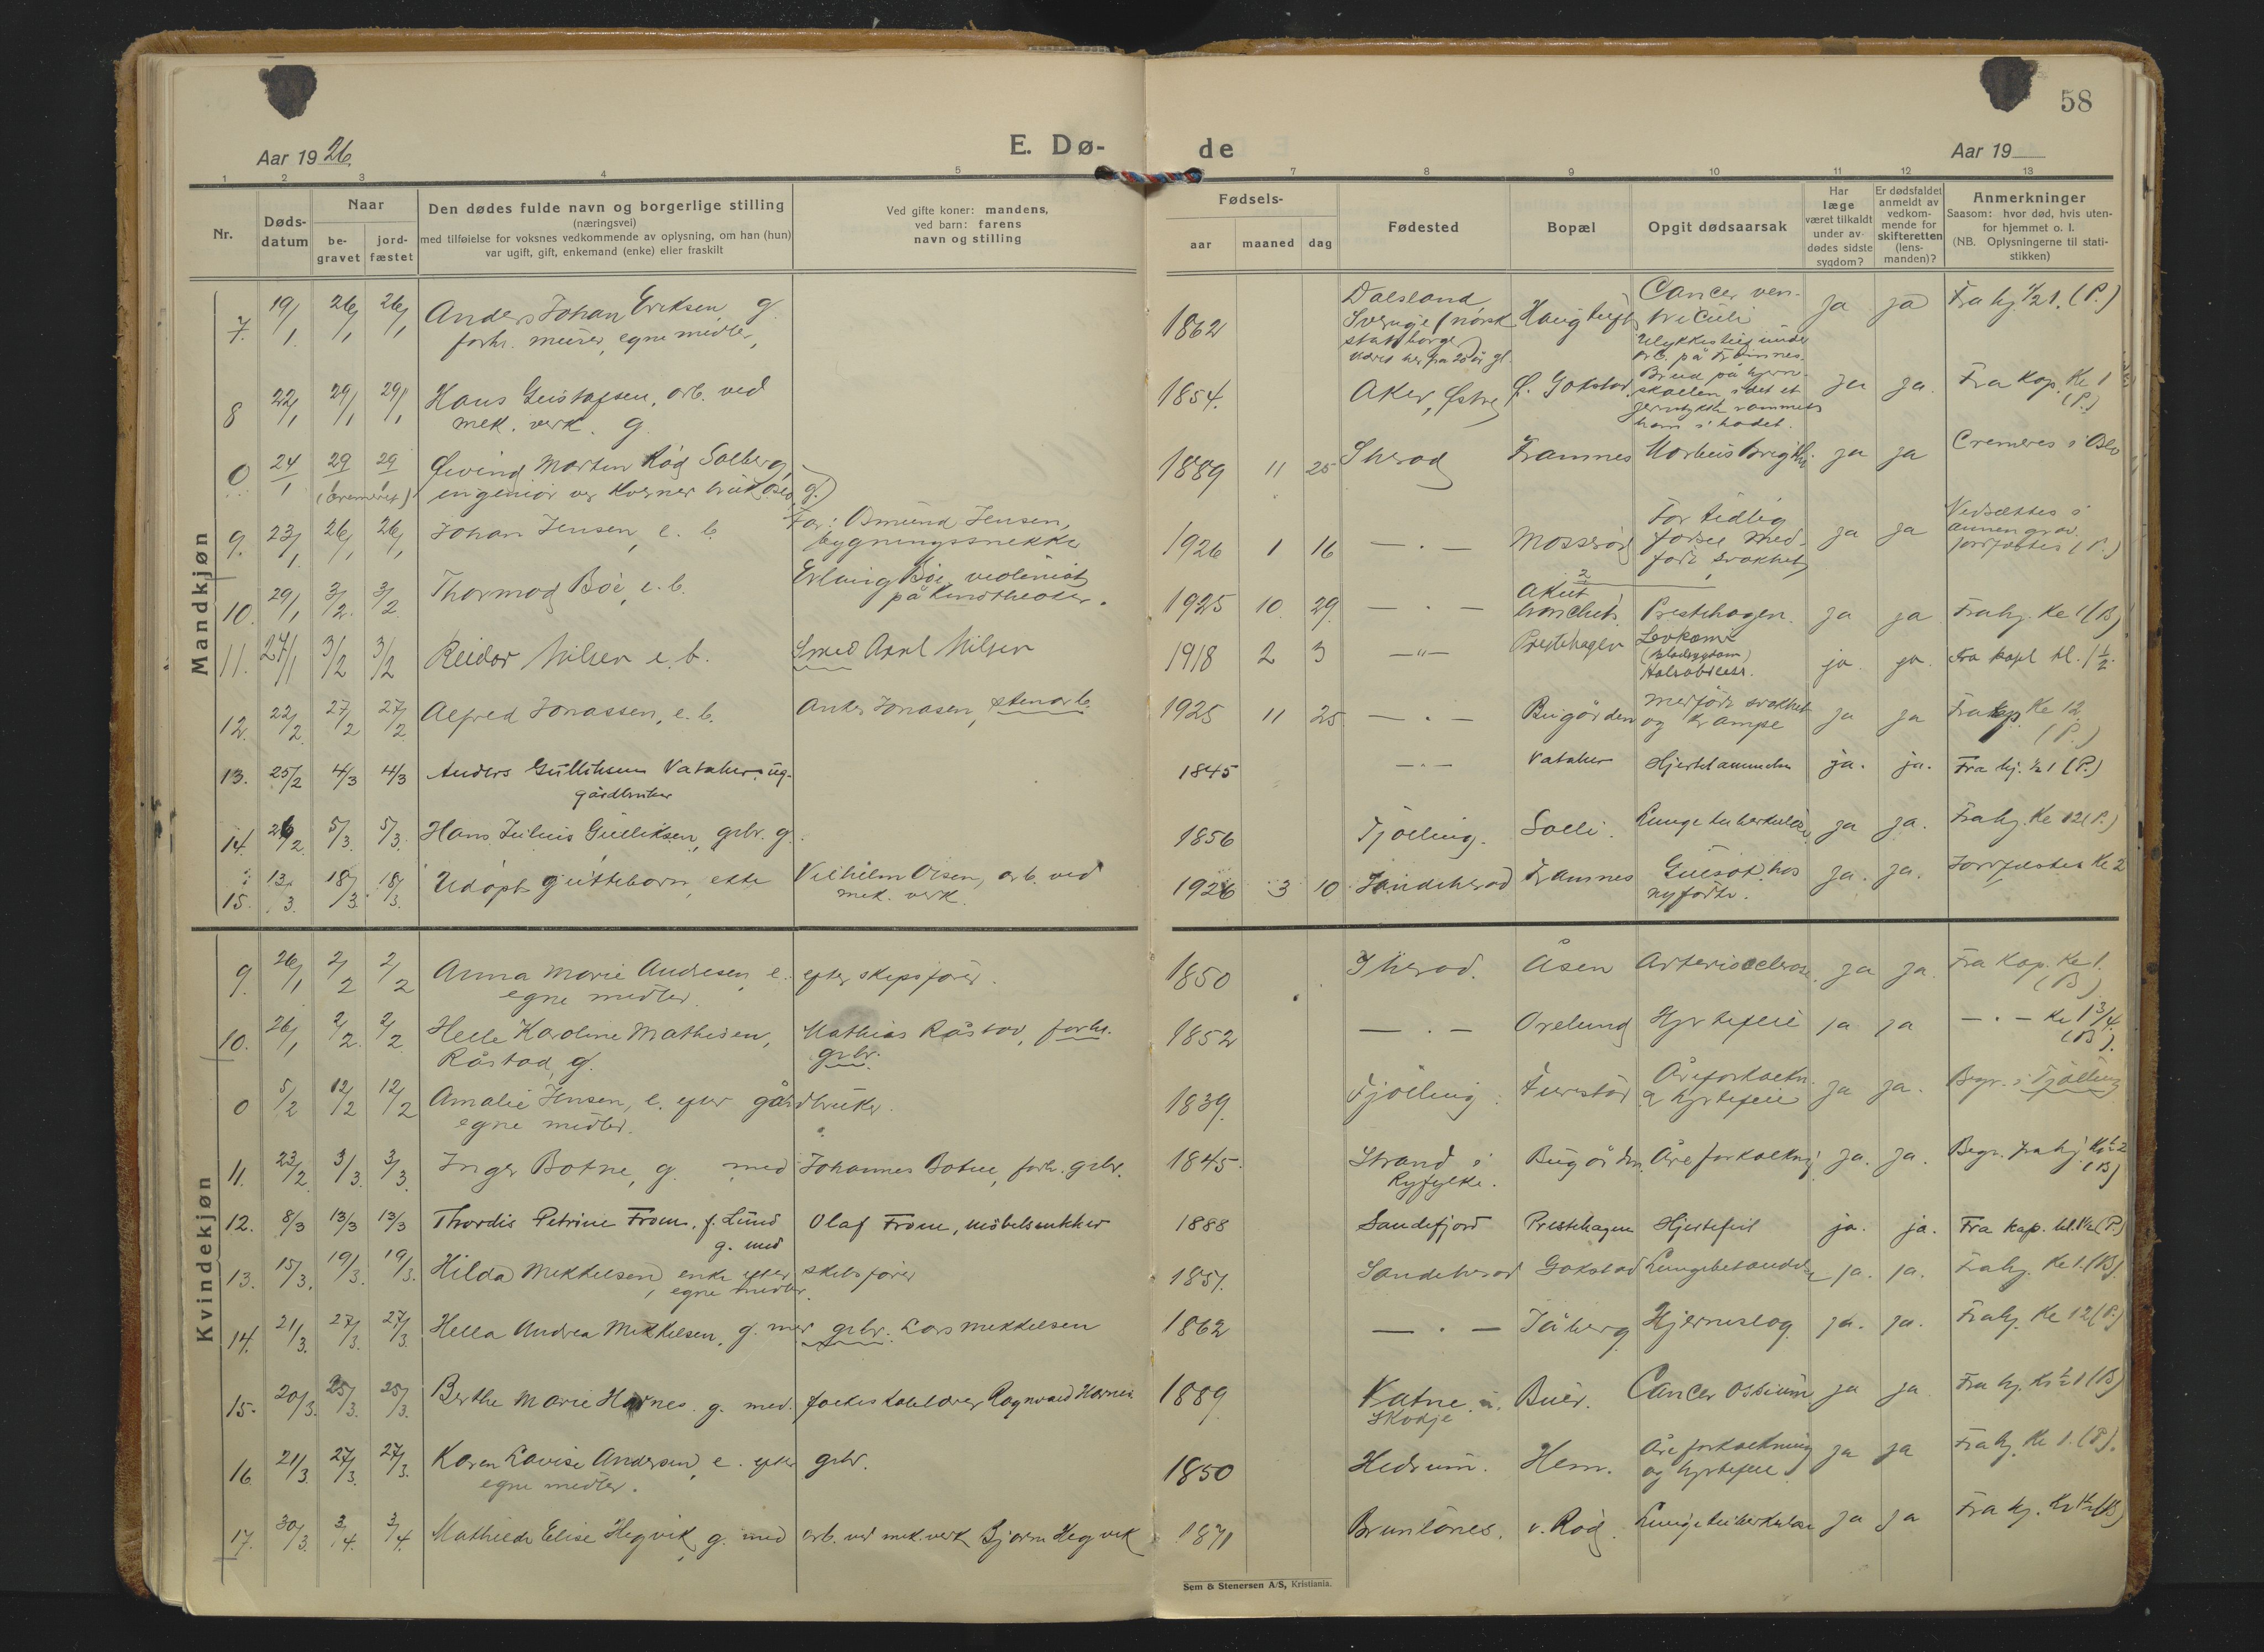 58
Aar 1926.
E. Dø-
de
Aar 19
1 2 3 4 5 7 8 9 10 11 12 13
Nr.
Døds-
datum
Naar
be-
gravet
jord-
fæstet
Den dødes fulde navn og borgerlige stilling
(næringsvei)
med tilføielse for voksnes vedkommende av oplysning, om han (hun)
var ugift, gift, enkemand (enke) eller fraskilt
Ved gifte koner: mandens,
ved barn: farens
navn og stilling
Fødsels-
aar maaned dag
Fødested
Bopæl
Opgit dødsaarsak
Har
læge
været tilkaldt
under av-
dødes sidste
sygdom?
Er dødsfaldet
anmeldt av
vedkom-
mende for
skifteretten
(lens-
manden)?
Anmerkninger
Saasom: hvor død, hvis uten-
for hjemmet o. l.
(NB. Oplysningerne til stati-
stikken)
Mandkjøn
7. 19/1. 26/1 26/1 Anders Johan Eriksen g.
forh. murer, egne midler,
1862
Dalsland
Sverige (norsk
statsborger
Cancer ven-
triculi
ja ja Fra hj. 1/2 1. (P.)
8 22/1 29/1 29/1 Hans Gustafsen, arb. ved
mek. verk. g.
1854. Aker, Østre Ø. Gokstad
Ulykkestilf. under
arb. på Framnes.
Brud på hjerne-
skallen, idet et
jernstykke rammet
ham i hodet.
ja ja. Fra kap. Kl 1
(P.)
0 24/1 29/1 29/1 Øivind Morten Rød Solberg,
(kremeret) ingeniør ved Kværner bruk Oslo, g.
1889 11 25 Sherad Framnes Morbus Brigthi ja ja Cremeres i Oslo
9. 23/1. 26/1 26/1 Johan Jensen, e. b. Far: Osmund Jensen,
bygningssnekker
1926 1 16 — . — Mosserød
For tidlig
fødsel med-
født svakhet
ja ja
Nedsættes i
annen grav.
jordfæstes (P.)
10. 29/1 3/2. 3/2. Thormod Bøe, e. b. Erling Bøe, violinist
på kinotheater.
1925 10 29 — . —
2
Akut
bronchit. Prestehagen. ja ja Fra hj. Kl 1 (B)
11. 27/1 3/2 3/2 Reidar Nilsen e. b. Smed Axel Nilsen
1918 2 3 — " — Prestehagen Levkæmi
(Blodsygdom)
Halsabscess.
ja. ja. Fra kapl kl. 1 1/2.
12. 22/2. 27/2 27/2. Alfred Jonassen, e. b. Anker Jonasen, stenarb.
1925 11 25 — . — Bugården medfødt svakhet
og krampe
ja ja Fra kap. Kl 12
(P.)
13. 25/2 4/3 4/3 Anders Gulliksen Vataker, ug-
gårdbruker
1845 — . — Vataker Hjertelammelse ja. ja. Fra hj. 1/2 1 (P.)
14. 26/2. 5/3. 5/3. Hans Julius Gulliksen, grbr. g.
1856 Tjølling. Solli. Lungetuberkulose ja ja. Fra hj. Kl 12 (P.)
15. 13/3. 18/3. 18/3. Udøpt guttebarn, ekte Vilhelm Olsen, arb. ved
mek. verk.
1926 3 10 Sandeherad Framnes Gulsot hos
nyfødte.
ja. ja. Jordfæstes Kl 2
Kvindekjøn
9. 26/1 2/2 2/2 Anna Marie Andresen, e. efter skipsfører.
egne midler.
1850 Sherad. Åsen Arteriosclerose ja ja. Fra Kap. Kl 1.
(B)
10. 26/1 2/2. 2/2. Helle Karoline Mathisen, Mathias Råstad, forh.
Råstad, g. grbr.
1852 — . — Orelund Hjertefeil ja ja — . — Kl 1 3/4.
(B).
0 5/2 12/2 12/2 Amalie Jensen, e. efter gårdbruker.
egne midler.
1839. Tjølling. Furstad Åreforkalkn.
& hjertefeil
ja ja. Begr. i Tjølling
11. 23/2. 3/3. 3/3. Inger Botne, g. med Johannes Botne, forh. grbr.
1845. Strand i
Ryfylke.
Bugården. Åreforkalkning ja. ja. Begr. fra hj. Kl 1/2 2
(B)
12. 8/3 13/3 13/3 Thordis Petrine From, f. Lund Olaf From, møbelsnekker
g. med
1888 Sandefjord Prestehagen Hjertefeil ja. ja. Fra kap. kl. 1/2 (P.)
13. 15/3. 19/3. 19/3. Hilda Mikkelsen, enke efter skibsfører
egne midler.
1851. Sandeherad Gokstad Lungebetændelse ja. ja. Fra hj. Kl 1. (B).
14. 21/3. 27/3. 27/3. Hella Andrea Mikkelsen, g. med grbr. Lars Mikkelsen
1862 — . — Jåberg Hjerneslag ja. ja. Fra hj. Kl 12 (P.)
15. 20/3. 25/3. 25/3. Berthe Marie Harnes. g. med. folkeskolelærer Ragnvald Harnes
1889 Vatne i.
Skodje
Buer. Cancer ossium ja ja Fra hj. Kl 1/2 1 (B)
16 21/3. 27/3. 27/3. Karen Lovise Andersen, e. efter grbr.
egne midler.
1850 Hedrum. Hem. Åreforkalkning
og hjertefeil
ja ja Fra hj. Kl 1. (P).
17. 30/3. 3/4. 3/4. Mathilde Elise Hegvik, g. med arb. ved mek. verk Bjarne Hegvik
1871 Brunlanes. v. Rød. Lungetuberkulose ja ja Fra hj. Kl 1/2 (B)
Sem & Stenersen A/S, Kristiania.